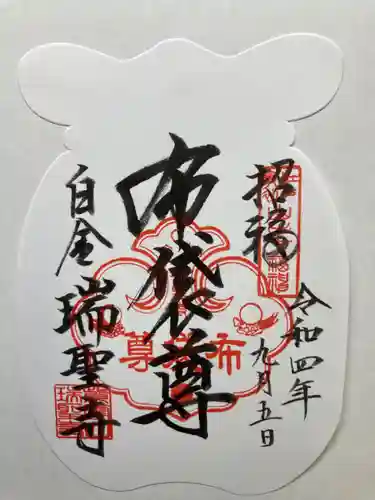 招福
令和四年
九月五日
布袋尊
白金
瑞聖寺
布袋尊